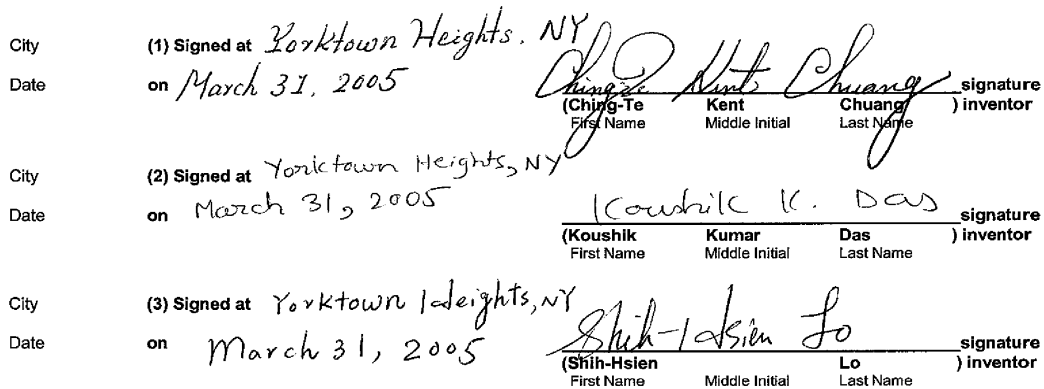 City (1) Signed at Yorktown Heights, NY
Date on March 31, 2005 Ching-Te Kent Chuang signature
(Ching-Te Kent Chuang ) inventor
First Name Middle Initial Last Name
City (2) Signed at Yorktown Heights, NY
Date on March 31, 2005 Koushik K. Das signature
(Koushik Kumar Das ) inventor
First Name Middle Initial Last Name
City (3) Signed at Yorktown Heights, NY
Date on March 31, 2005 Shih-Hsien Lo signature
(Shih-Hsien Lo ) inventor
First Name Middle Initial Last Name